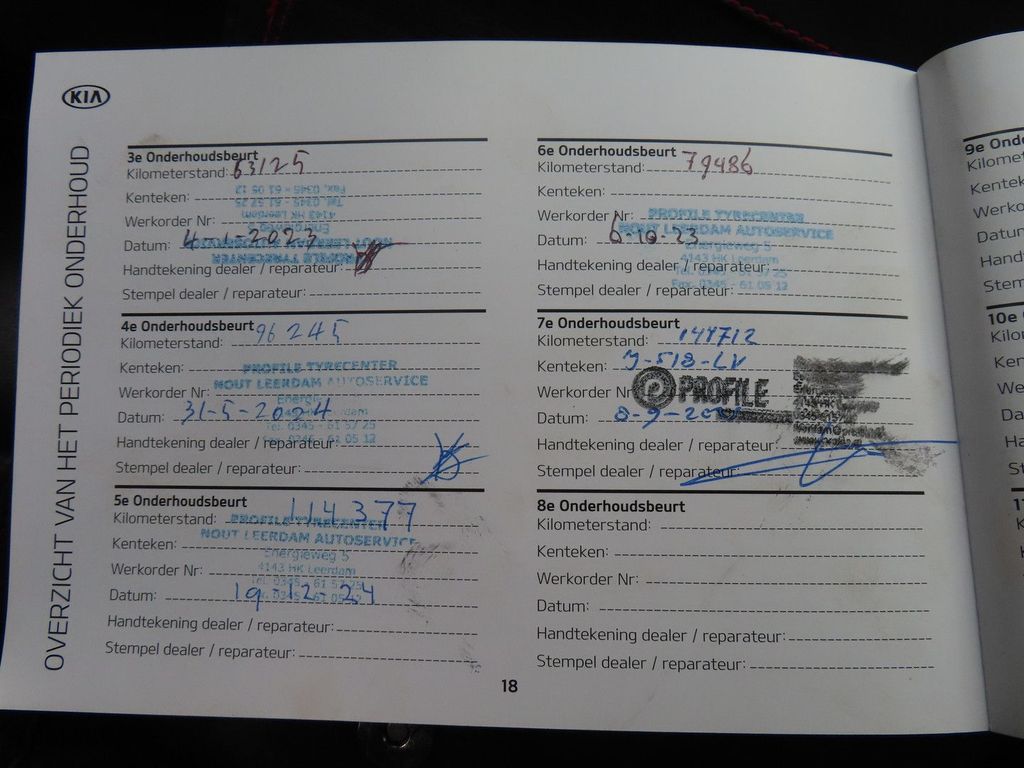 KIA
OVERZICHT VAN HET PERIODIEK ONDERHOUD
3e Onderhoudsbeurt
Kilometerstand: 63125
Kenteken:
Fax. 0345 - 61 05 12
Tel. 0345 - 61 57 25
Werkorder Nr:
4143 HK Leerdam
Energieweg 5
Datum: 4-1-2023
NOUT LEERDAM AUTOSERVICE
PROFILE TYRECENTER
Handtekening dealer / reparateur:
Stempel dealer / reparateur:
4e Onderhoudsbeurt
Kilometerstand: 96245
Kenteken:
PROFILE TYRECENTER
NOUT LEERDAM AUTOSERVICE
Werkorder Nr:
Datum: 31-5-2024
Tel. 0345 - 61 57 25
Fax. 0345 - 61 05 12
Handtekening dealer / reparateur:
Stempel dealer / reparateur:
5e Onderhoudsbeurt
Kilometerstand: 114377
PROFILE TYRECENTER
NOUT LEERDAM AUTOSERVICE
Kenteken:
Energieweg 5
4143 HK Leerdam
Werkorder Nr:
Tel. 0345 - 61 57 25
Datum: 19-12-24
Handtekening dealer / reparateur:
Stempel dealer / reparateur:
6e Onderhoudsbeurt
Kilometerstand: 79486
Kenteken:
Werkorder Nr:
PROFILE TYRECENTER
NOUT LEERDAM AUTOSERVICE
Datum: 6-10-23
Energieweg 5
4143 HK Leerdam
Tel. 0345 - 61 57 25
Fax. 0345 - 61 05 12
Handtekening dealer / reparateur:
Stempel dealer / reparateur:
7e Onderhoudsbeurt
Kilometerstand:
Kenteken: J-518-LV
Werkorder Nr:
PROFILE
Datum: 8-9-
Handtekening dealer / reparateur:
Stempel dealer / reparateur:
8e Onderhoudsbeurt
Kilometerstand:
Kenteken:
Werkorder Nr:
Datum:
Handtekening dealer / reparateur:
Stempel dealer / reparateur:
18
9e Ond
Kilomet
Kentek
Werko
Datum
Hand
Stem
10e
Kilo
Ken
We
Da
Ha
St